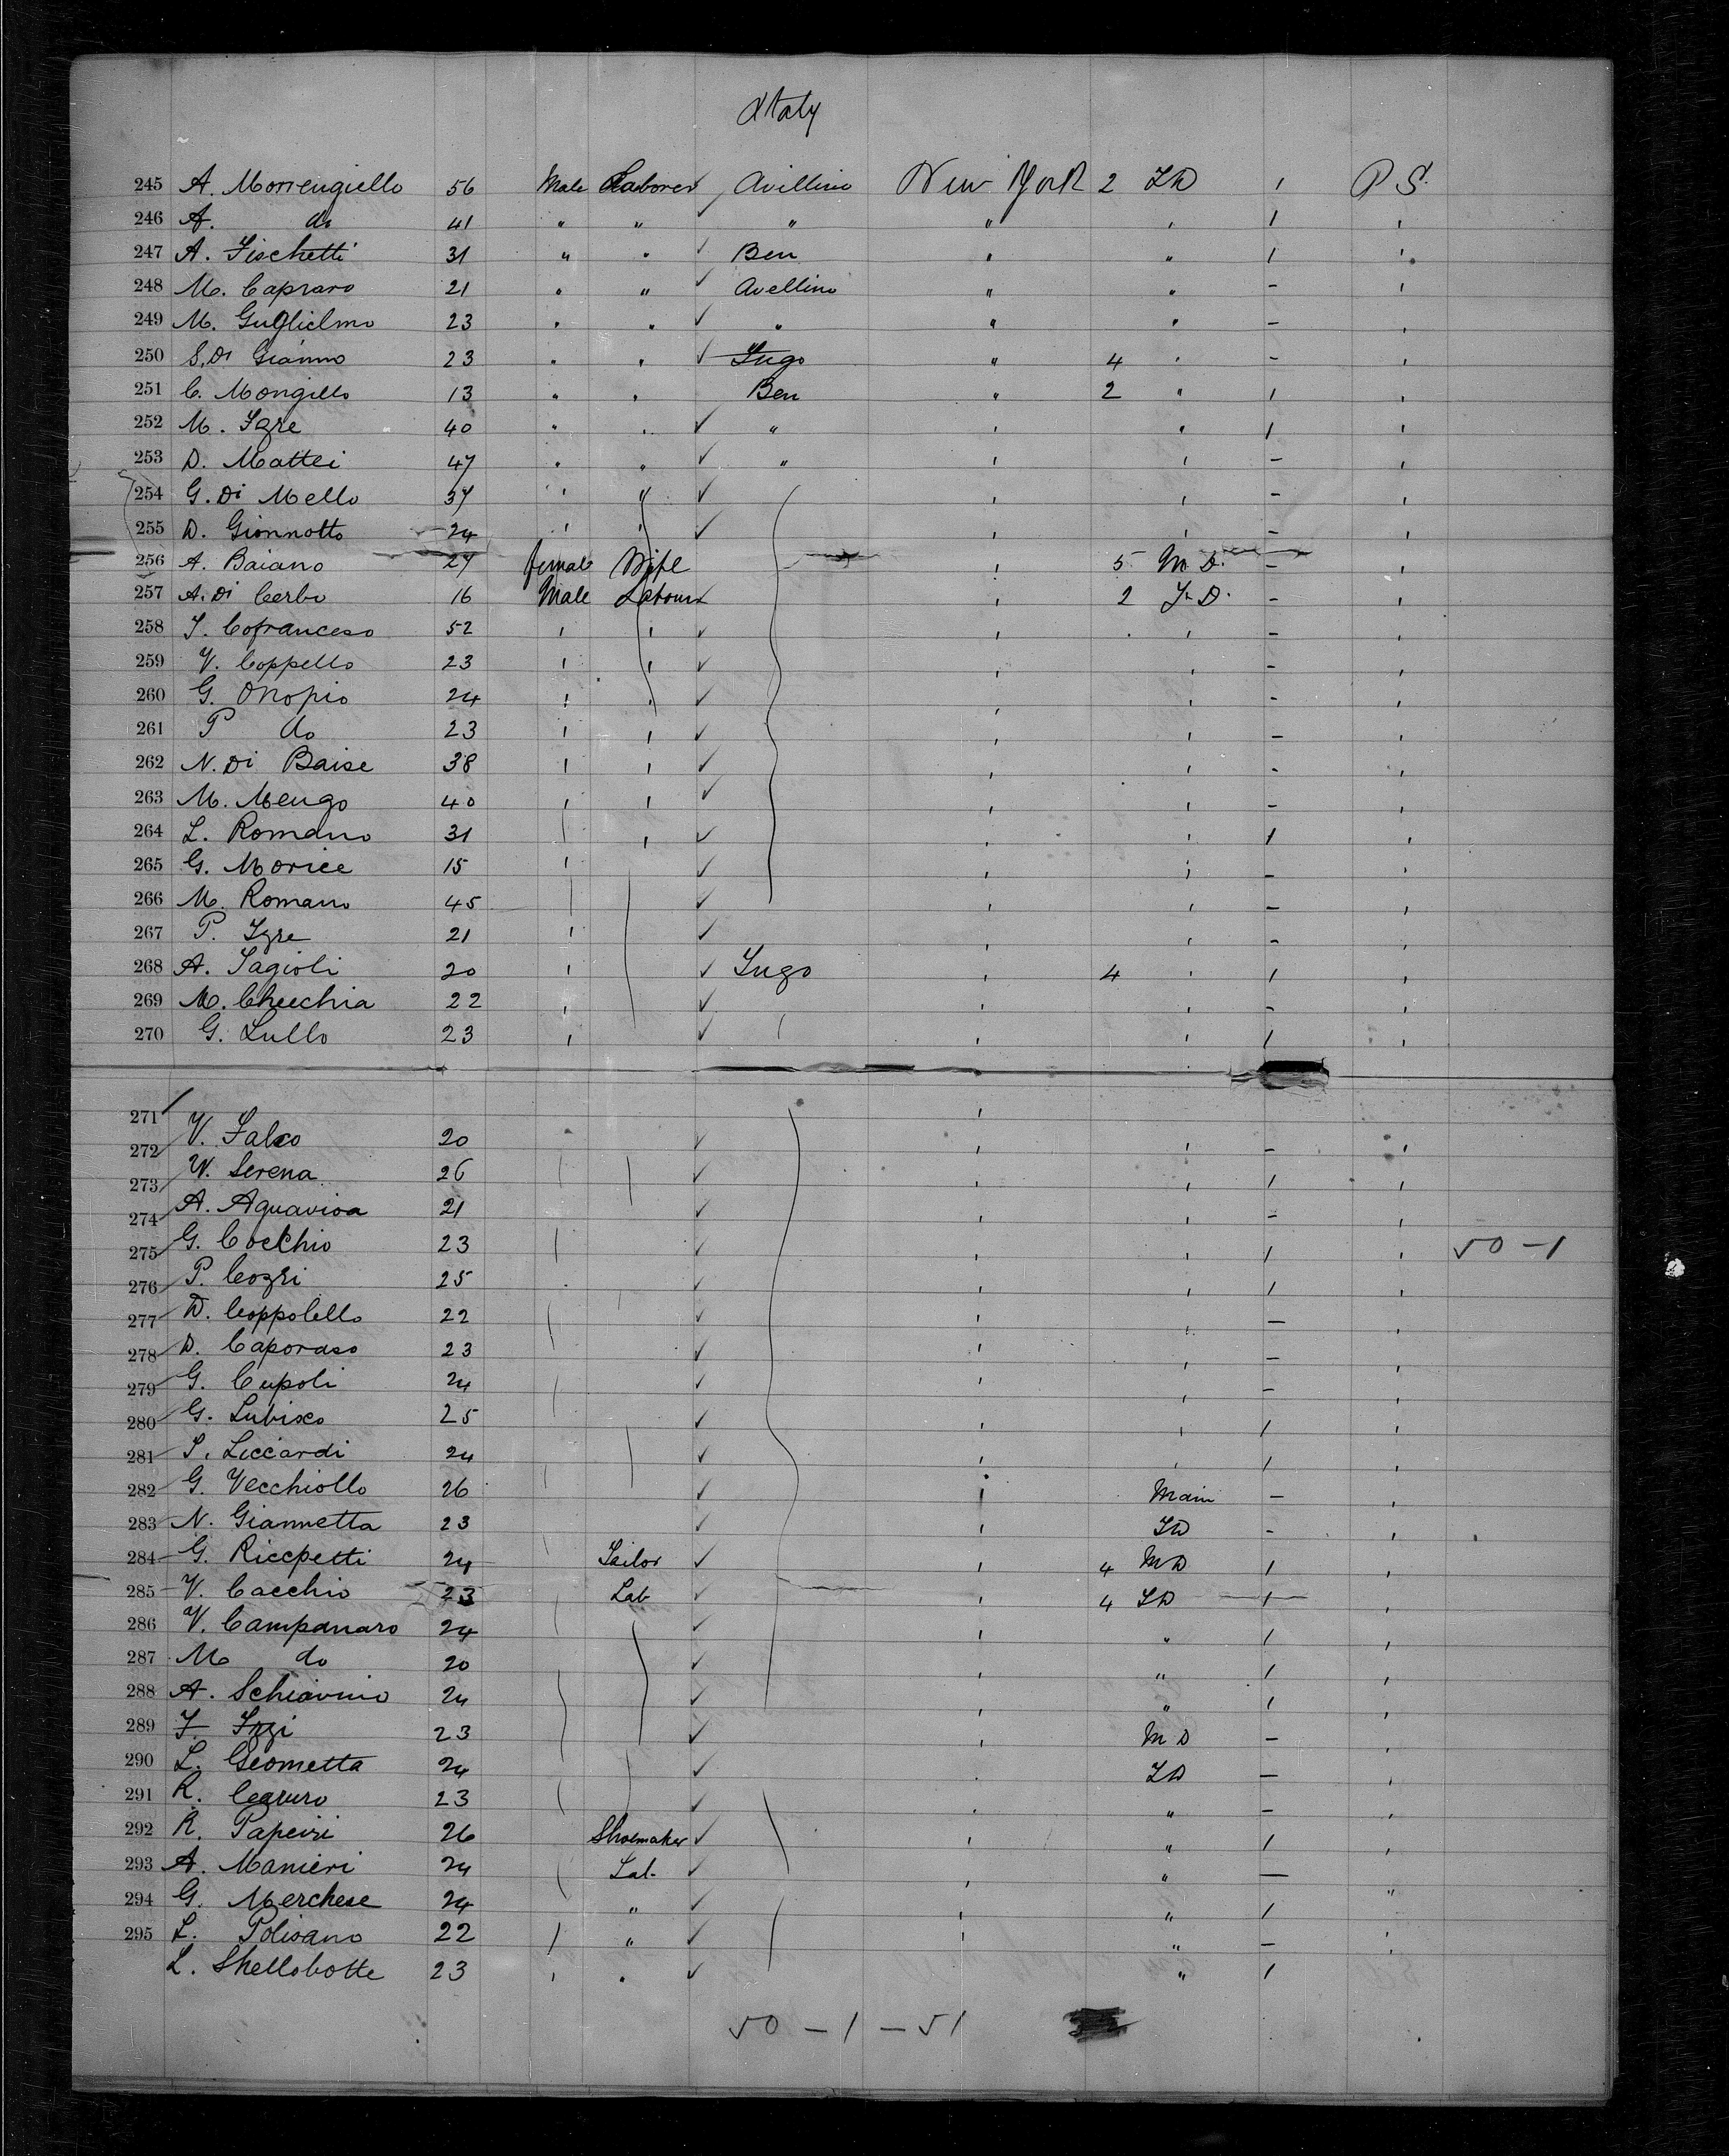 Italy
245 A. Morrengiello 56 Male Laborer ✓ Avillino New York 2 LD 1 P S.
246 A. do 41 " " " " " 1 "
247 A. Fischetti 31 " " ✓ Ben " " 1 "
248 M. Capraro 21 " " ✓ Avellino " " - "
249 M. Guglielmo 23 " " ✓ " " " - "
250 S. Di Gianno 23 " " ✓ " 4 " - "
251 C. Mongillo 13 " " Ben " 2 " 1 "
252 M. Izre 40 " " ✓ " " " 1 "
253 D. Mattei 47 " " ✓ " " " - "
254 G. Di Mello 37 " " ✓ " " - "
255 D. Gionnotto 24 " " ✓ " " - "
256 A. Baiano 27 female Wife " 5 M D. - "
257 A. Di Cerbo 16 Male Labourer " 2 L.D. - "
258 J. Cofranceso 52 " " ✓ " " - "
259 V. Coppello 23 " " ✓ " " - "
260 G. Onopio 24 " " ✓ " " - "
261 P do 23 " " ✓ " " - "
262 N. Di Baise 38 " " ✓ " " - "
263 M. Mengo 40 " " ✓ " " - "
264 L. Romano 31 " ✓ " " 1 "
265 G. Morice 15 " ✓ " " - "
266 M. Romano 45 ✓ " " - "
267 P. Izre 21 " ✓ " " - "
268 A. Sagioli 20 " ✓ 4 " 1 "
269 M. Checchia 22 " ✓ " " - "
270 G. Lullo 23 " ✓ " " 1 "
271
272 V. Falco 20 ✓ " " - "
273 V. Serena 26 ✓ " " 1 "
274 A. Aquaviva 21 ✓ " " - "
275 G. Cocchio 23 ✓ " " 1 " 50 - 1
276 P. Cozri 25 ✓ " " 1 "
277 D. Coppolello 22 ✓ " " - "
278 D. Caporaso 23 ✓ " " - "
279 G. Cupoli 24 ✓ " " - "
280 G. Lubisco 25 ✓ " " 1 "
281 S. Liccardi 24 ✓ " " 1 "
282 G. Vecchiollo 26 ✓ " Main - "
283 N. Giannetta 23 ✓ " LD - "
284 G. Riccpetti 24 ✓ " 4 MD 1 "
285 V. Cacchio 23 Lab ✓ " 4 LD 1 "
286 V. Campanaro 24 ✓ " " 1 "
287 M do 20 ✓ " " 1 "
288 A. Schiavino 24 ✓ " " 1 "
289 F. Izzi 23 ✓ " M D - "
290 L. Geometta 24 ✓ " LD - "
291 R. Caruro 23 ✓ " " - "
292 R. 26 Shoemaker ✓ " " 1 "
293 A. Manieri 24 Lab. ✓ " " - "
294 G. Merchese 24 " ✓ " " 1 "
295 L. Polisano 22 " ✓ " " - "
L. Shellobotte 23 " " ✓ " 1
50 - 1 - 51